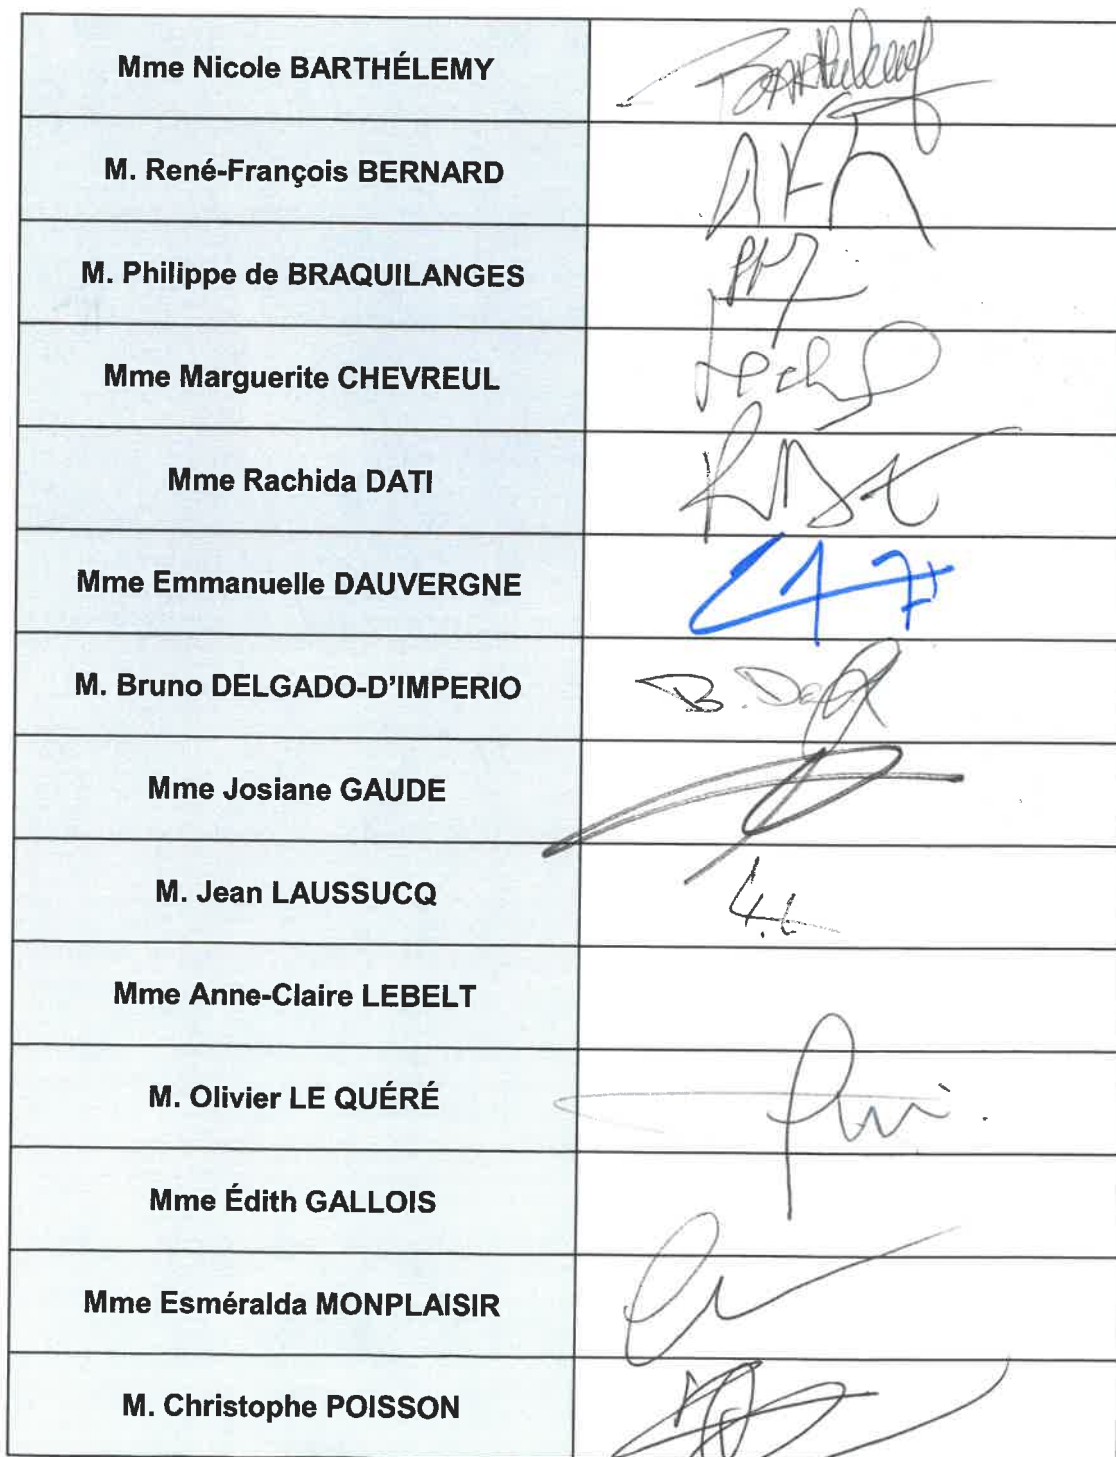 Mme Nicole BARTHÉLEMY
Barthélemy
M. René-François BERNARD
M. Philippe de BRAQUILANGES
Mme Marguerite CHEVREUL
Mme Rachida DATI
Mme Emmanuelle DAUVERGNE
M. Bruno DELGADO-D'IMPERIO
Mme Josiane GAUDE
M. Jean LAUSSUCQ
Mme Anne-Claire LEBELT
M. Olivier LE QUÉRÉ
Mme Édith GALLOIS
Mme Esméralda MONPLAISIR
M. Christophe POISSON